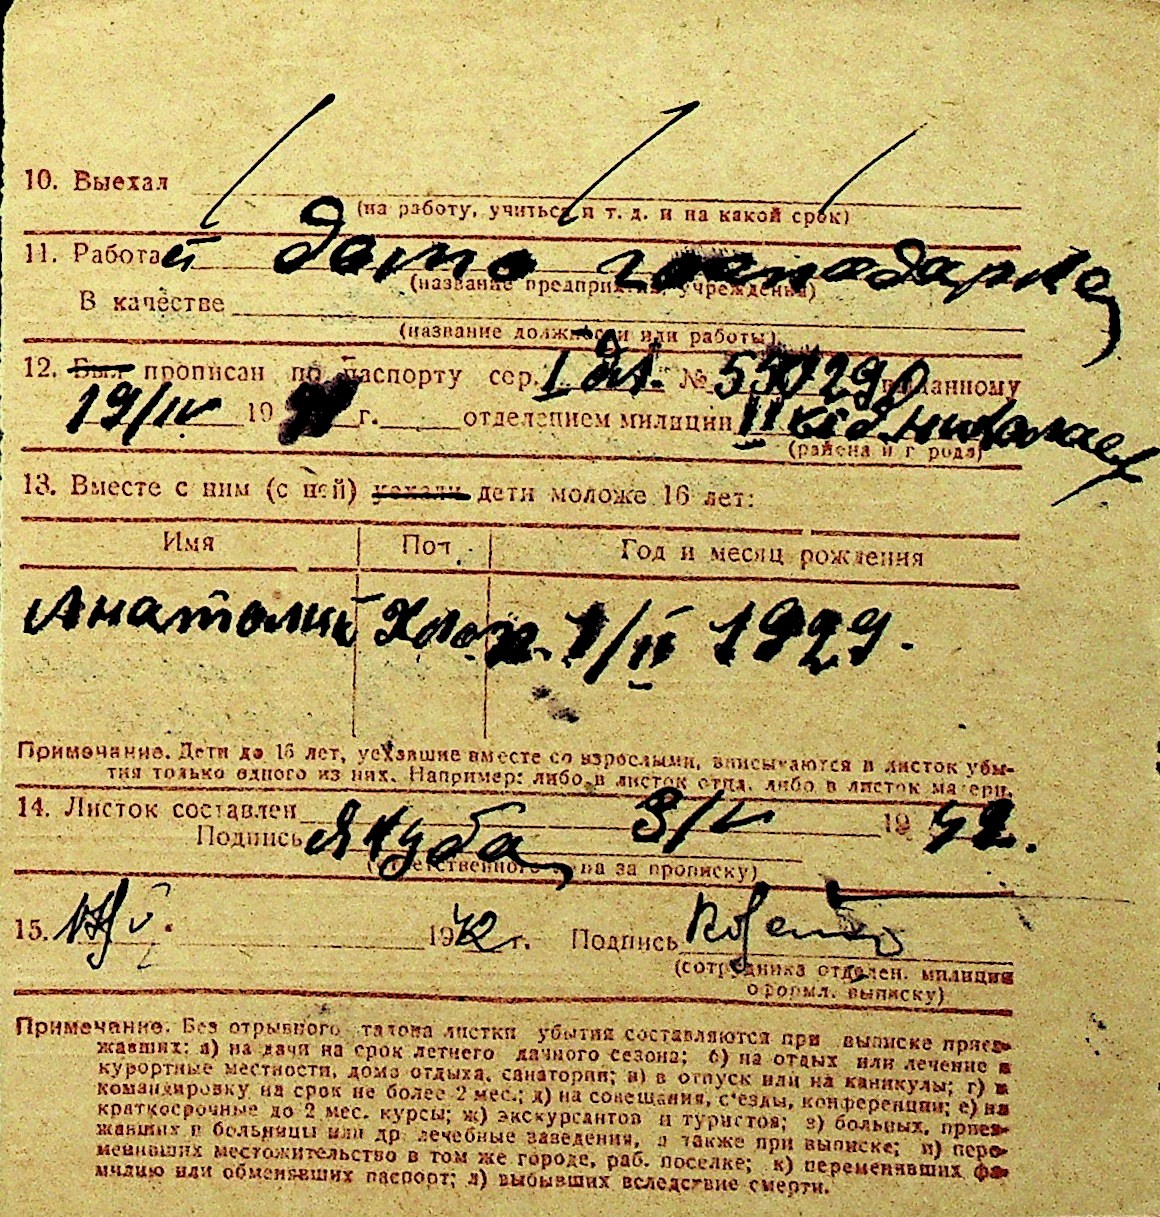 10. Выехал
(на работу, учиться и т. д. и на какой срок)
11. Работает домо господарка
(название предприятия, учреждения)
В качестве
(название должности или работы)
12. Был прописан по паспорту сер. I № выданному
19/IV 19 г. отделением милиции II
(района и города)
13. Вместе с ним (с ней) уехали дети моложе 16 лет:
Имя Пол Год и месяц рождения
Анатолий 1/II 1929.
Примечание. Дети до 16 лет, уехавшие вместе со взрослыми, вписываются в листок убы-
тия только одного из них. Например: либо в листок отца, либо в листок матери.
14. Листок составлен 3/V 1942.
Подпись Якуба
(ответственного лица за прописку)
15. 1942 г. Подпись
(сотрудника отделен. милиции
оформл. выписку)
Примечание. Без отрывного талона листки убытия составляются при выписке приез-
жавших: а) на дачи на срок летнего дачного сезона; б) на отдых или лечение в
курортные местности, дома отдыха, санатории; в) в отпуск или на каникулы; г) в
командировку на срок не более 2 мес.; д) на совещания, с'езды, конференции; е) на
краткосрочные до 2 мес. курсы; ж) экскурсантов и туристов; з) больных, приез-
жавших в больницы или др. лечебные заведения, а также при выписке; и) пере-
менивших местожительство в том же городе, раб. поселке; к) переменивших фа-
милию или обменявших паспорт; л) выбывших вследствие смерти.